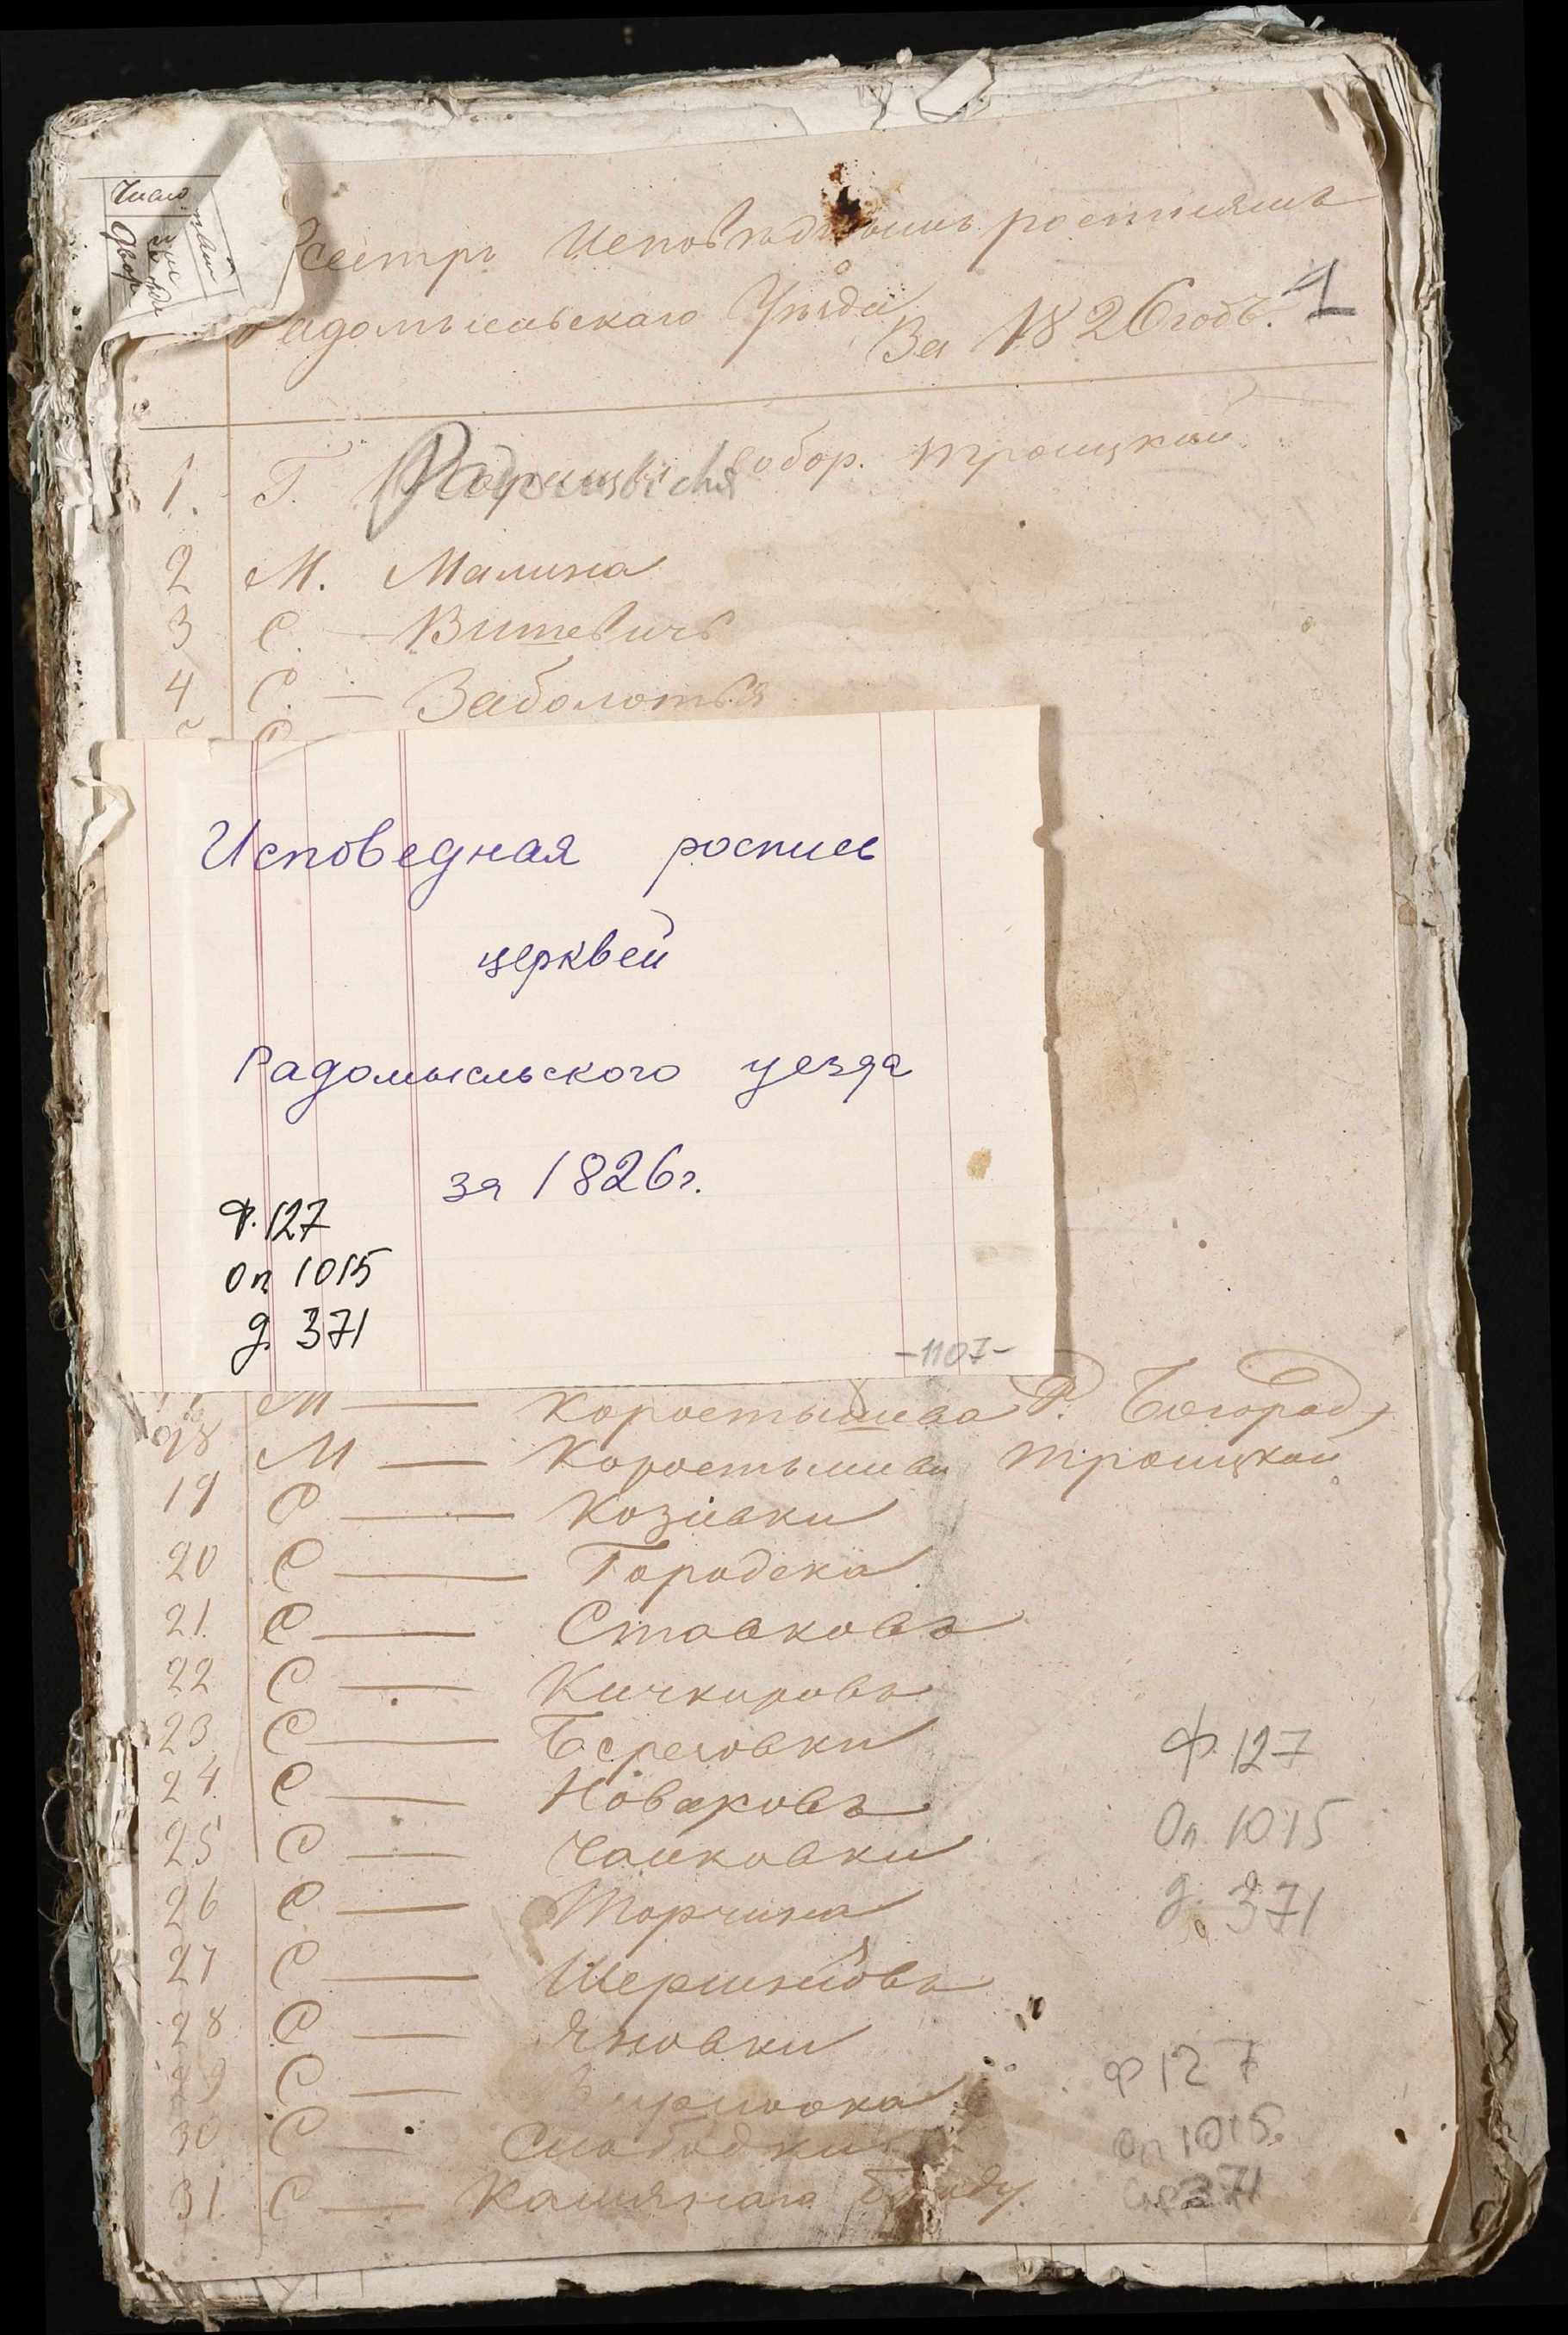 Число
Реестръ Исповѣднымъ росписямъ
Радомысльскаго Уѣзда
За 1826 годъ. 1
1. Г. Собор. Троицкой
2 М. Малина
3 С. — Витевичъ
4 С. — Заболотья
Исповедная роспись
церквей
Радомысльского уезда
за 1826г.
Ф. 127
Оп 1015
д. 371
-1107-
М — Коростышева Р. Богород,
18 М — Коростышева Троицкой
19 С — Козіевки
20 С — Городска
21 С — Ставковъ
22 С — Кичкировъ
23 С — Березовки
24 С — Новаковъ
25 С — Чайковки
26 С — Торчина
27 С — Шершнёвъ
28 С — Яновки
29 С —
30 С — Слободки
31 С — Камянаго броду
Ф. 127
Оп. 1015
д. 371
Ф 127
Оп 1015
371